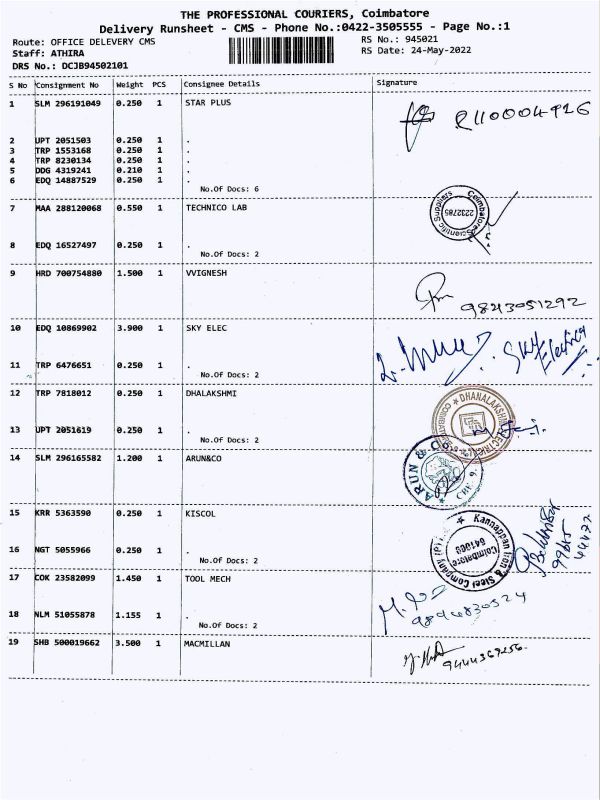 THE PROFESSIONAL COURIERS, Coimbatore
Delivery Runsheet - CMS - Phone No.:0422-3505555 - Page No.:1
Route: OFFICE DELEVERY CMS RS No.: 945021
Staff: ATHIRA RS Date: 24-May-2022
DRS No.: DCJB94502101
S No Consignment No Weight PCS Consignee Details Signature
1 SLM 296191049 0.250 1 STAR PLUS
R110004926
2 UPT 2051503 0.250 1 .
3 TRP 1553168 0.250 1 .
4 TRP 8230134 0.250 1 .
5 DDG 4319241 0.210 1 .
6 EDQ 14887529 0.250 1 .
No.Of Docs: 6
7 MAA 288120068 0.550 1 TECHNICO LAB
Coimbatore Scientific Suppliers
2232785
8 EDQ 16527497 0.250 1 .
No.Of Docs: 2
9 HRD 700754880 1.500 1 VVIGNESH
9843051292
10 EDQ 10869902 3.900 1 SKY ELEC
Sky Electrical
11 TRP 6476651 0.250 1 .
No.Of Docs: 2
12 TRP 7818012 0.250 1 DHALAKSHMI
13 UPT 2051619 0.250 1 .
No.Of Docs: 2
14 SLM 296165582 1.200 1 ARUN&CO
ARUN & CO
15 KRR 5363590 0.250 1 KISCOL
Kannappan Iron & Steel Company (P)
Coimbatore
16 NGT 5055966 0.250 1 .
No.Of Docs: 2
17 COK 23582099 1.450 1 TOOL MECH
9894830524
18 NLM 51055878 1.155 1 .
No.Of Docs: 2
19 SHB 500019662 3.500 1 MACMILLAN
9444369256